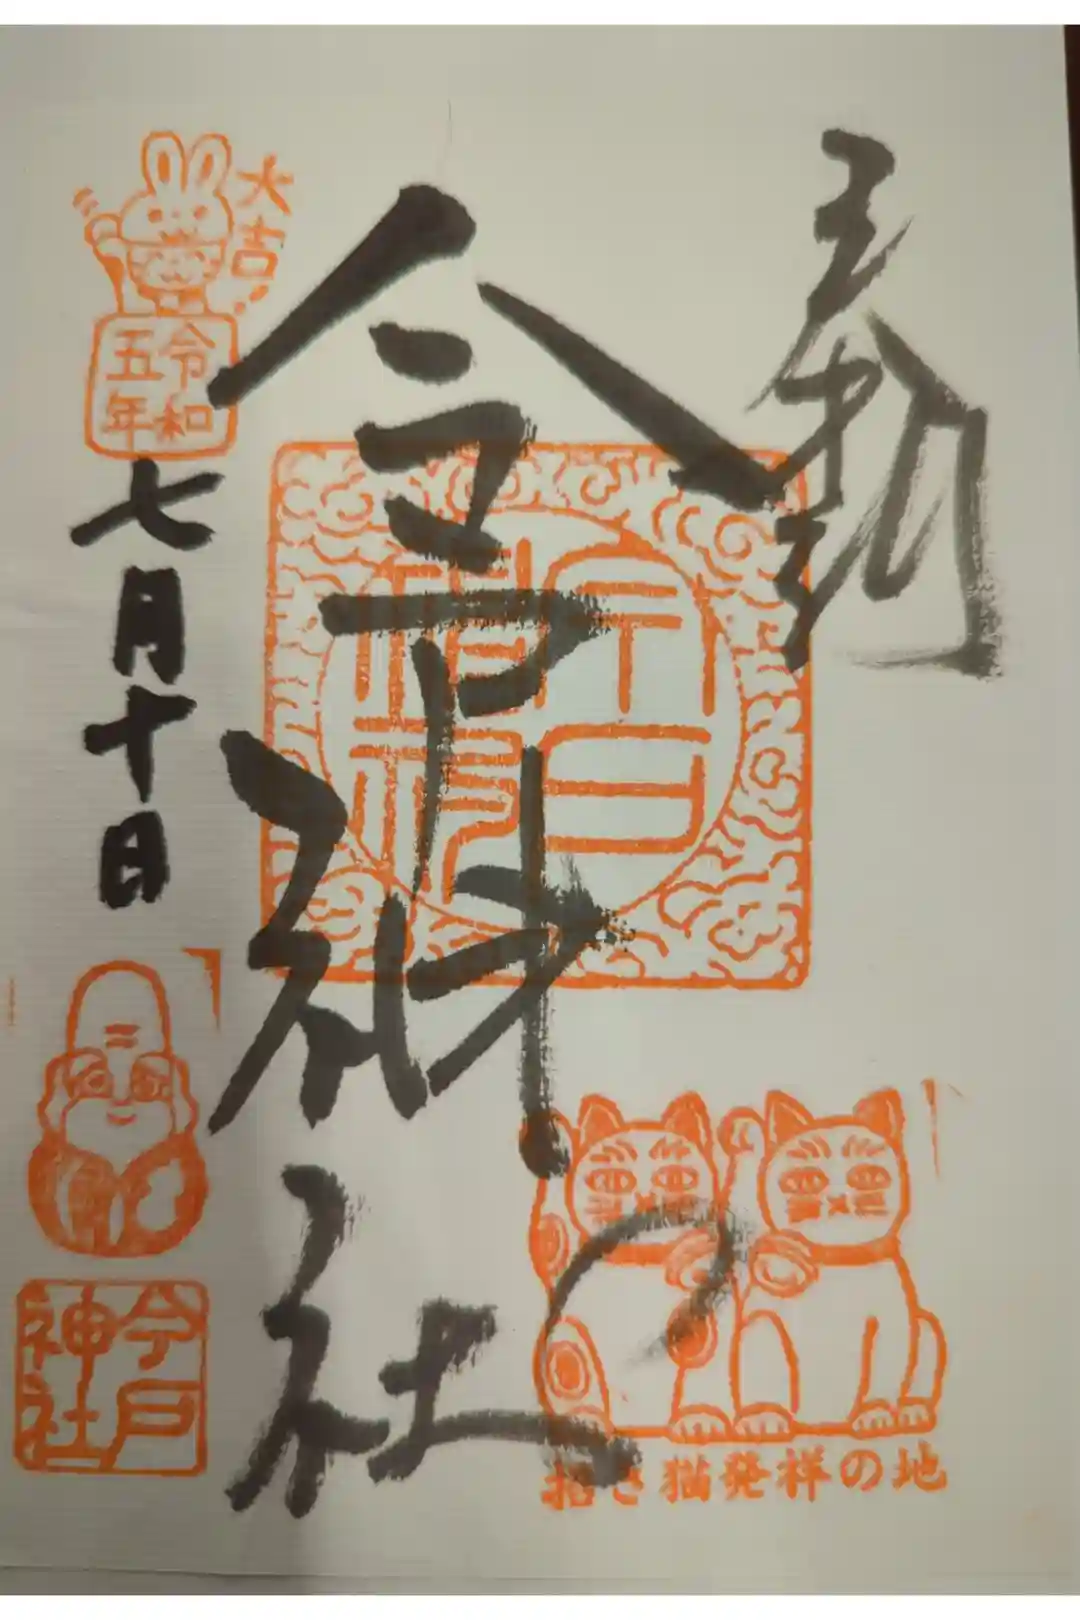 奉拝
今戸神社
今戸神社
招き猫発祥の地
大吉!
令和
五年
七月十日
今戸
神社